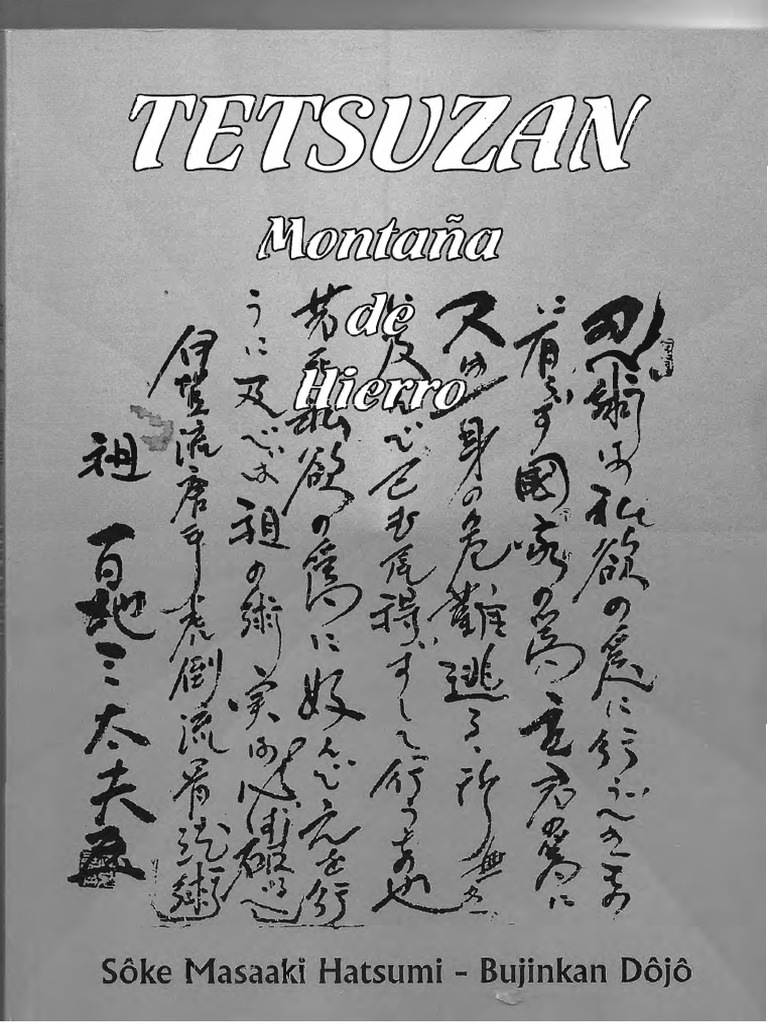 TETSUZAN
Montaña
de
Hierro
術は私欲の為に行うべきもの
に有らず國家の為主君の為に
又は身の危難逃る、所無
に及んで已む得ずして行うもの也
若し私欲の為に好んで之を行
うに及べば祖の術実は
伊賀流唐手虎倒流骨法術
祖 百地三太夫
Sôke Masaaki Hatsumi - Bujinkan Dôjô